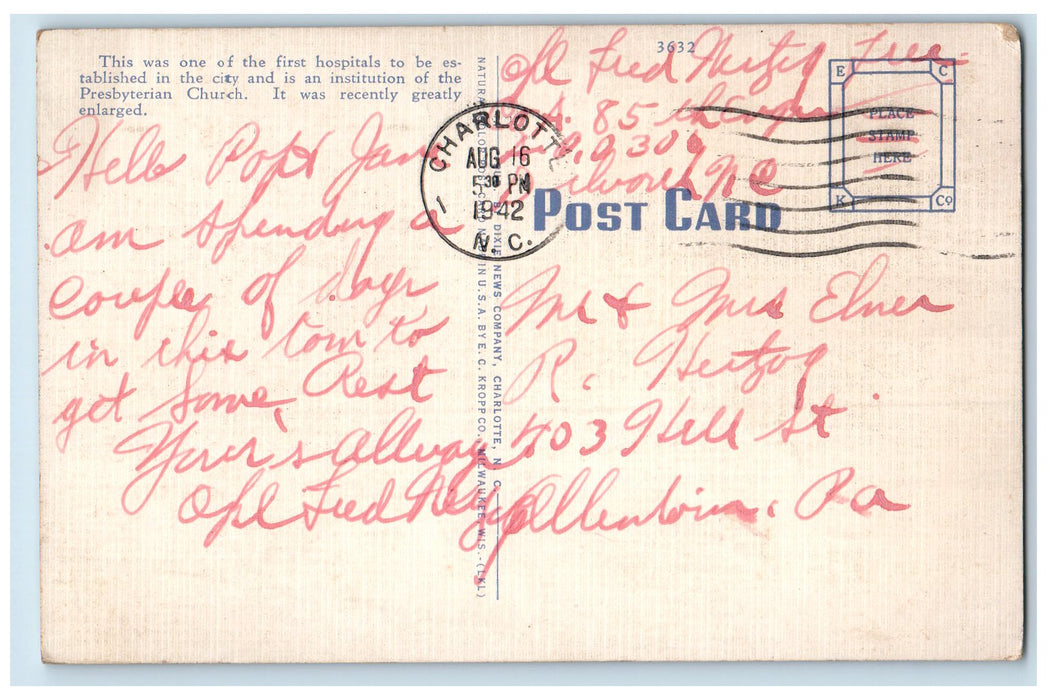 This was one of the first hospitals to be es-
tablished in the city and is an institution of the
Presbyterian Church. It was recently greatly
enlarged.
Hello Pop
am spending a
couple of days
in this town to
get some Rest
Your's Allway
Cpl Fred
NATURAL
DIXIE NEWS COMPANY, CHARLOTTE, N. C.
IN U. S. A. BY E. C. KROPP CO., MILWAUKEE, WIS.-(LKL)
CHARLOTTE
AUG 16
5 30 PM
1942
N. C.
1
3632
Cpl Fred Hertzog Free
85
N C
E C
PLACE
STAMP
HERE
K Co
POST CARD
Mr & Mrs Elmer
R. Hertzog
403 St
Allentown, Pa